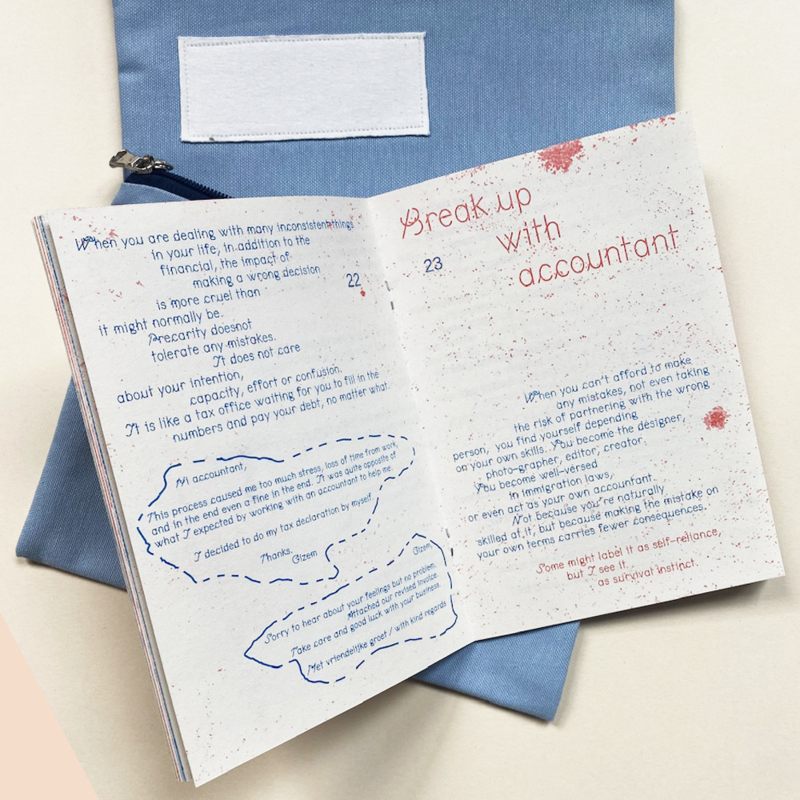 When you are dealing with many inconsistent things
in your life, in addition to the
financial, the impact of
making a wrong decision
is more cruel than
it might normally be.
Precarity doesnot
tolerate any mistakes.
It does not care
about your intention,
capacity, effort or confusion.
It is like a tax office waiting for you to fill in the
numbers and pay your debt, no matter what.
22
Hi accountant,
This process caused me too much stress, loss of time from work,
and in the end even a fine in the end. It was quite opposite of
what I expected by working with an accountant to help me.
I decided to do my tax declaration by myself.
Thanks.
Gizem
Gizem,
Sorry to hear about your feelings but no problem.
Attached our revised invoice.
Take care and good luck with your business.
Met vriendelijke groet / with kind regards
Break up
with
accountant
23
When you can't afford to make
any mistakes, not even taking
the risk of partnering with the wrong
person, you find yourself depending
on your own skills. You become the designer,
photo-grapher, editor, creator.
You become well-versed
in immigration laws,
or even act as your own accountant.
Not because you're naturally
skilled at it, but because making the mistake on
your own terms carries fewer consequences.
Some might label it as self-reliance,
but I see it
as survival instinct.